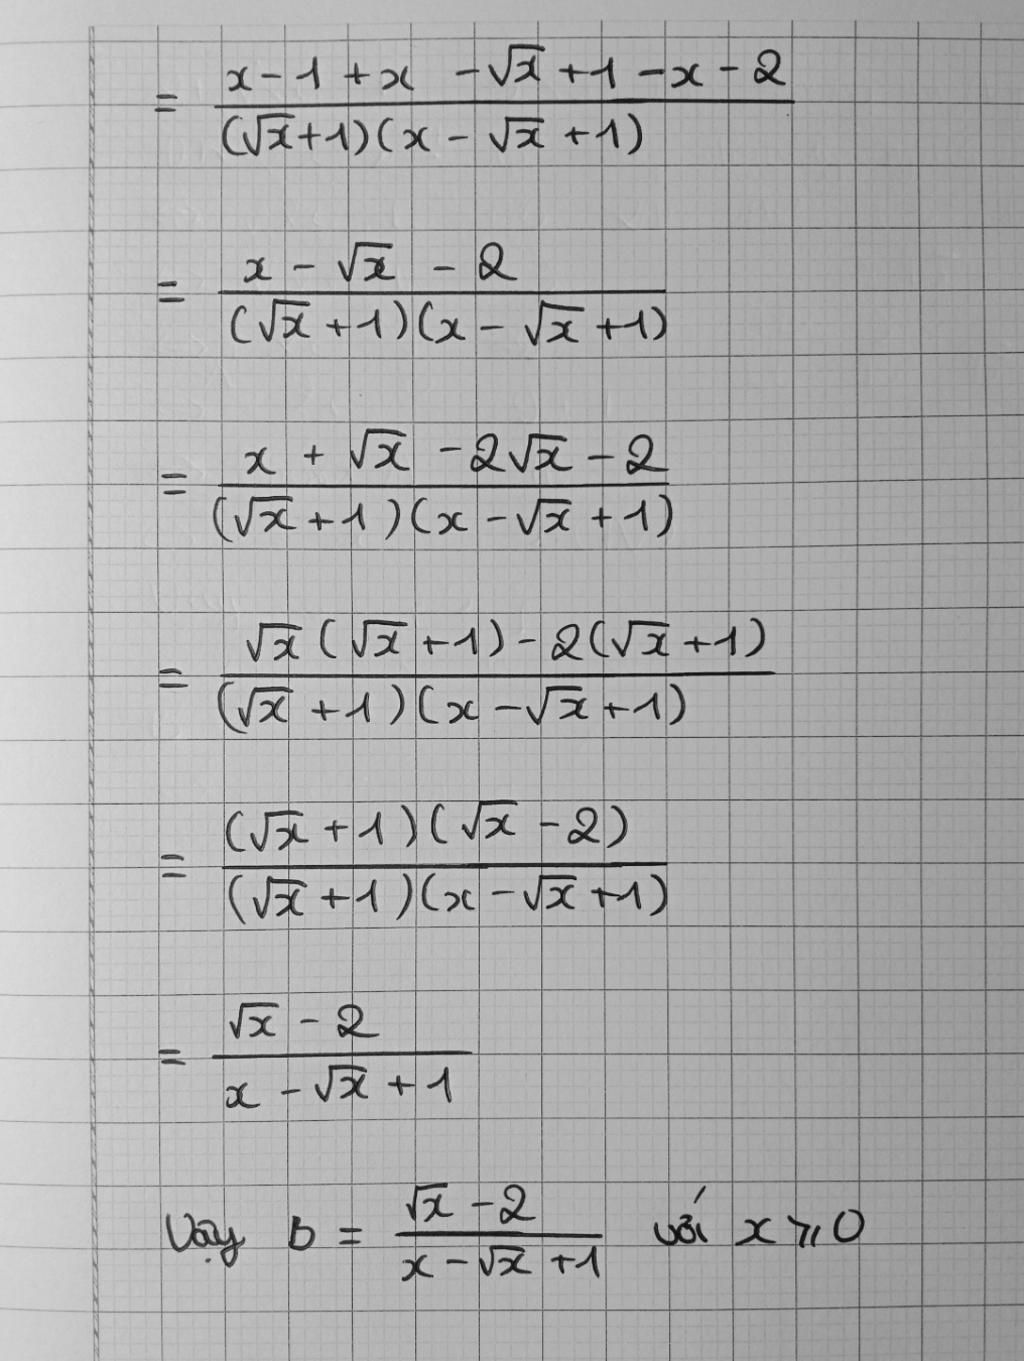 = \frac{x - 1 + x - \sqrt{x} + 1 - x - 2}{(\sqrt{x} + 1)(x - \sqrt{x} + 1)}
= \frac{x - \sqrt{x} - 2}{(\sqrt{x} + 1)(x - \sqrt{x} + 1)}
= \frac{x + \sqrt{x} - 2\sqrt{x} - 2}{(\sqrt{x} + 1)(x - \sqrt{x} + 1)}
= \frac{\sqrt{x}(\sqrt{x} + 1) - 2(\sqrt{x} + 1)}{(\sqrt{x} + 1)(x - \sqrt{x} + 1)}
= \frac{(\sqrt{x} + 1)(\sqrt{x} - 2)}{(\sqrt{x} + 1)(x - \sqrt{x} + 1)}
= \frac{\sqrt{x} - 2}{x - \sqrt{x} + 1}
Vậy b = \frac{\sqrt{x} - 2}{x - \sqrt{x} + 1} với x ⩾ 0